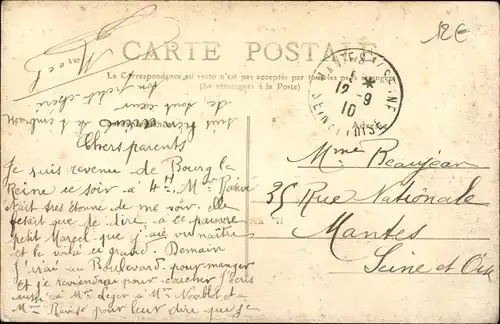 12€
CARTE POSTALE
La Correspondance au recto n'est pas acceptée par tous les pays étrangers
(Se renseigner à la Poste)
MANTES S/SEINE
12-9
10
SEINE ET OISE
Marcel
de tout cœur
Chers parents
Je suis revenu de Bourg la
Reine ce soir à 4h M
était très étonné de me voir. elle
fesait que de dire à ce pauvre
petit Marcel que j'ai vu naître
et le voilà si grand. Demain
j'irai au Boulevard pour manger
et je reviendrai pour coucher j'écris
aussi à Mr Leger à Mr et à
Mme pour leur dire que je
Mme Beaujean
35 Rue Nationale
Mantes
Seine et Oise